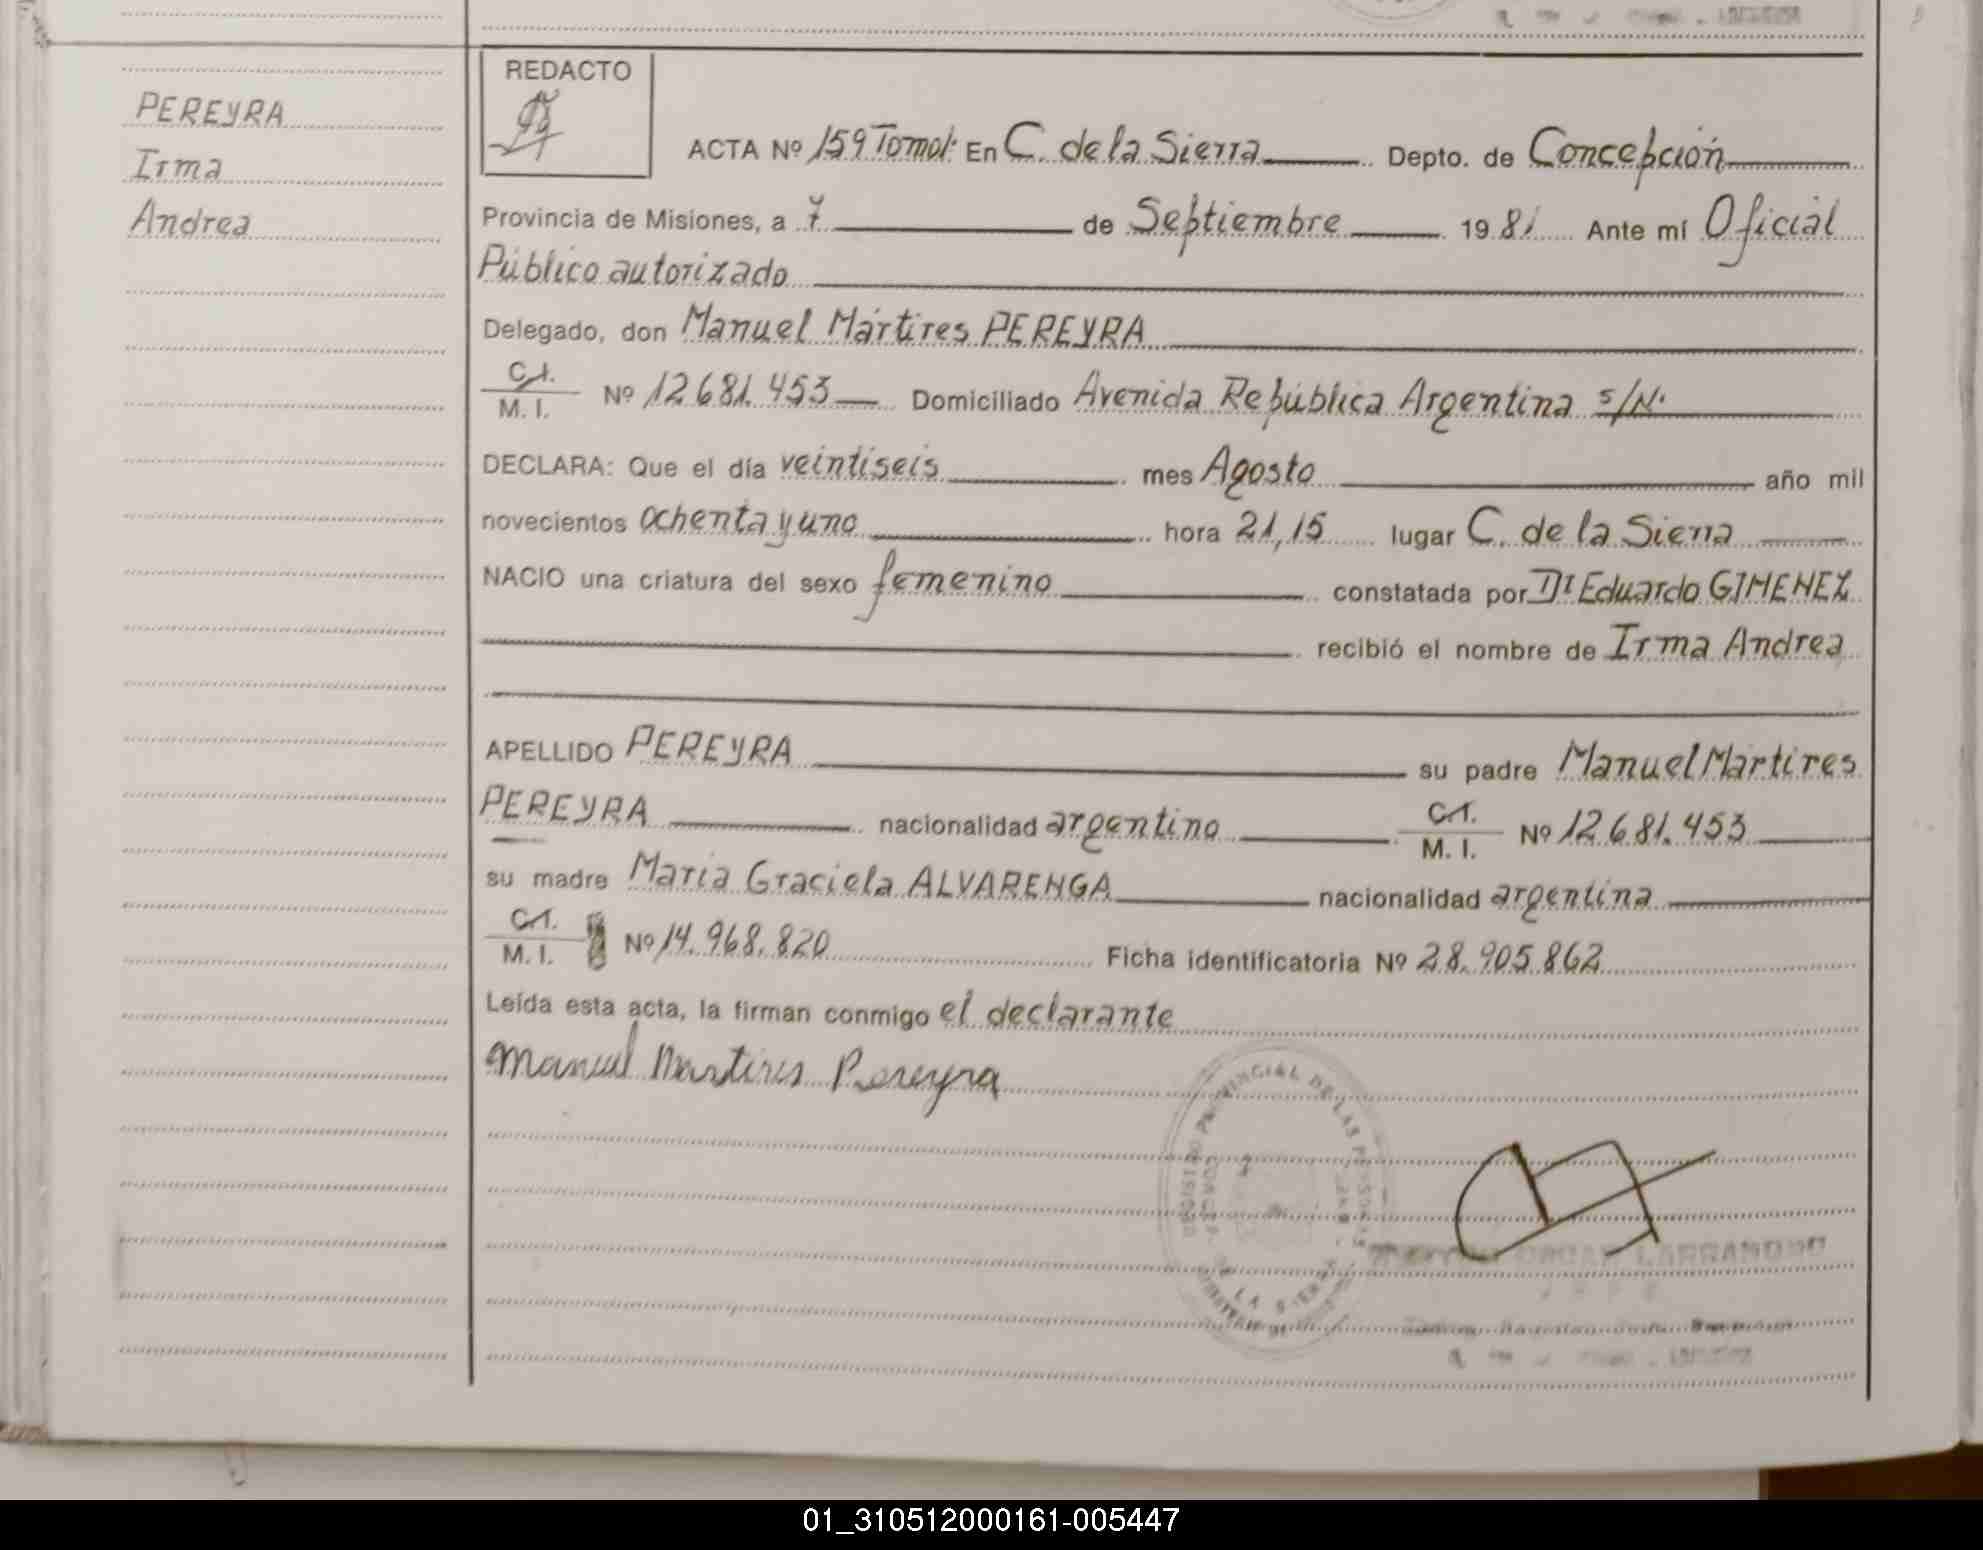 PEREYRA
Irma
Andrea
REDACTO
ACTA Nº 159 Tomo I: En C. de la Sierra Depto. de Concepción
Provincia de Misiones, a 7 de Septiembre 1981 Ante mí Oficial
Público autorizado
Delegado, don Manuel Mártires PEREYRA
C.I.
M. I. Nº 12.681.453 Domiciliado Avenida República Argentina s/N.
DECLARA: Que el día veintiseis mes Agosto año mil
novecientos ochenta y uno hora 21,15 lugar C. de la Sierra
NACIO una criatura del sexo femenino constatada por Dr Eduardo GIMENEZ
recibió el nombre de Irma Andrea
APELLIDO PEREYRA su padre Manuel Mártires
PEREYRA nacionalidad argentino C.I.
M. I. Nº 12.681.453
su madre María Graciela ALVARENGA nacionalidad argentina
C.I.
M. I. Nº 14.968.820 Ficha identificatoria Nº 28.905.862
Leída esta acta, la firman conmigo el declarante
Manuel Martires Pereyra
PROVINCIAL DE LAS PERSONAS
DE LA SIERRA
OSCAR
01_310512000161-005447